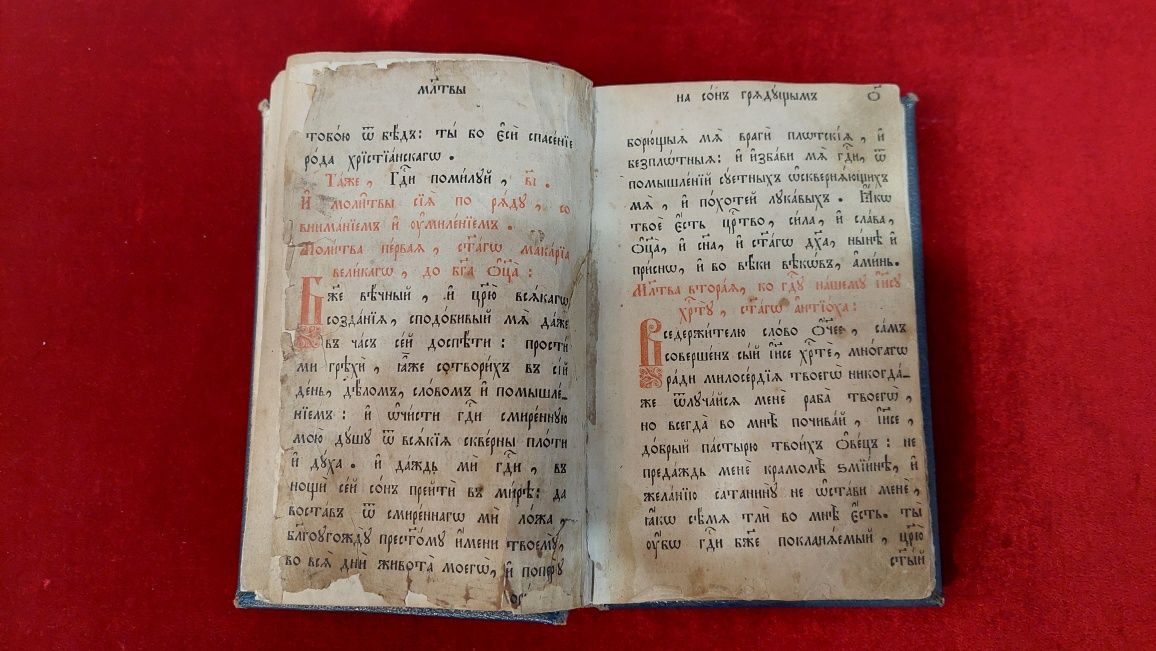 мл҃твы
тобо́ю ѿ бѣ́дъ: ты́ бо є҆сѝ спасе́нїе
ро́да хрїстїа́нскагѡ .
Та́же , Гдⷭ҇и поми́лꙋй , в҃і .
И҆ моли̑твы сїѧ̑ по рѧ́дꙋ , со
внима́нїемъ и҆ ᲂу҆миле́нїемъ .
Моли́тва пе́рвая , ст҃а́гѡ мака́рїа
вели́кагѡ , до бг҃а ѻ҆ц҃а̀ :
Бж҃е вѣ́чный , и҆ цр҃ю̀ всѧ́кагѡ
созда́нїѧ , сподо́бивый мѧ̀ да́же
въ ча́съ се́й доспѣ́ти : прости́
ми грѣхѝ , ꙗ҆̀же сотвори́хъ въ сі́й
де́нь , дѣ́ломъ , сло́вомъ и҆ помышле́-
нїемъ : и҆ ѡ҆чи́сти гдⷭ҇и смире́ннꙋю
мою̀ дꙋ́шꙋ ѿ всѧ́кїѧ скве́рны пло́ти
и҆ дꙋ́ха . и҆ да́ждь мѝ гдⷭ҇и , въ
нощѝ се́й со́нъ прейтѝ въ ми́рѣ : да
воста́въ ѿ смире́ннагѡ мѝ ло́жа ,
бл҃гоꙋгождꙋ̀ прест҃о́мꙋ и҆́мени твоемꙋ̀ ,
во всѧ̑ дни̑ живота̀ моегѡ̀ , и҆ поперꙋ̀
на со́нъ грѧдꙋ́щымъ о҃
борю́щыѧ мѧ̀ врагѝ плотскі́ѧ , и҆
безплѡ́тныѧ : и҆ и҆зба́ви мѧ̀ гдⷭ҇и , ѿ
помышле́нїй сꙋ́етныхъ ѡ҆сквернѧ́ющихъ
мѧ̀ , и҆ по́хотей лꙋка́выхъ . Ꙗ҆́кѡ
твоѐ є҆́сть црⷭ҇тво , си́ла , и҆ сла́ва ,
ѻ҆ц҃а̀ , и҆ сн҃а , и҆ ст҃а́гѡ дх҃а , ны́нѣ и҆
при́снѡ , и҆ во вѣ́ки вѣкѡ́въ , а҆ми́нь .
Мл҃тва втора́я , ко гдⷭ҇ꙋ на́шемꙋ і҆и҃сꙋ
хрⷭ҇тꙋ̀ , ст҃а́гѡ а҆нтїо́ха :
Вседержи́телю сло́во ѻ҆́ч҃ее , са́мъ
соверше́нъ сы́й і҆и҃се хрⷭ҇тѐ , мно́гагѡ
ра́ди милосе́рдїѧ твоегѡ̀ никогда́-
же ѿлꙋча́йсѧ менѐ раба̀ твоегѡ̀ ,
но всегда̀ во мнѣ̀ почива́й , і҆и҃се ,
до́брый па́стырю твои́хъ ѻ҆ве́цъ : не
преда́ждь менѐ крамо́лѣ ѕмїи́нѣ , и҆
жела́нїю сатанинꙋ̀ не ѡ҆ста́ви менѐ ,
ꙗ҆́кѡ сѣ́мѧ тли̑ во мнѣ̀ є҆́сть . ты́
ᲂу҆̀бѡ гдⷭ҇и бж҃е покланѧ́емый , цр҃ю̀
ст҃ы́й